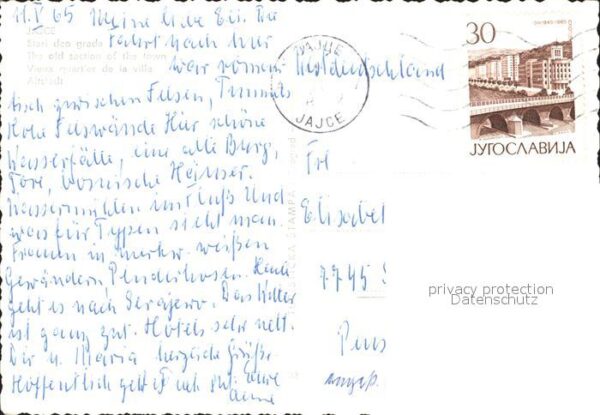 11.V 65 Meine liebe Eli. Die
JAJCE
Fahrt nach hier
Stari deo grada
The old section of the town
war roman
Vieux quartier de la ville
Altstadt
tisch zwischen Felsen, Tunnels
Hohe Felswände Hier schöne
Wasserfälle, eine alte Burg,
Tore, bosnische Häuser.
Wassermühlen im Fluß Und
was für Typen sieht man.
Frauen in merkw. weißen
Gewändern, Pluderhosen. Heute
geht es nach Serajewo. Das Wetter
ist ganz gut. Hotels sehr nett.
Dir u. Maria herzliche Grüße
Hoffentlich geht es Euch gut. Eure
Anne
JAJCE
30
1945-1965
ЈУГОСЛАВИЈА
Westdeutschland
Frl
Elisabet
7745
Pens
privacy protection
Datenschutz